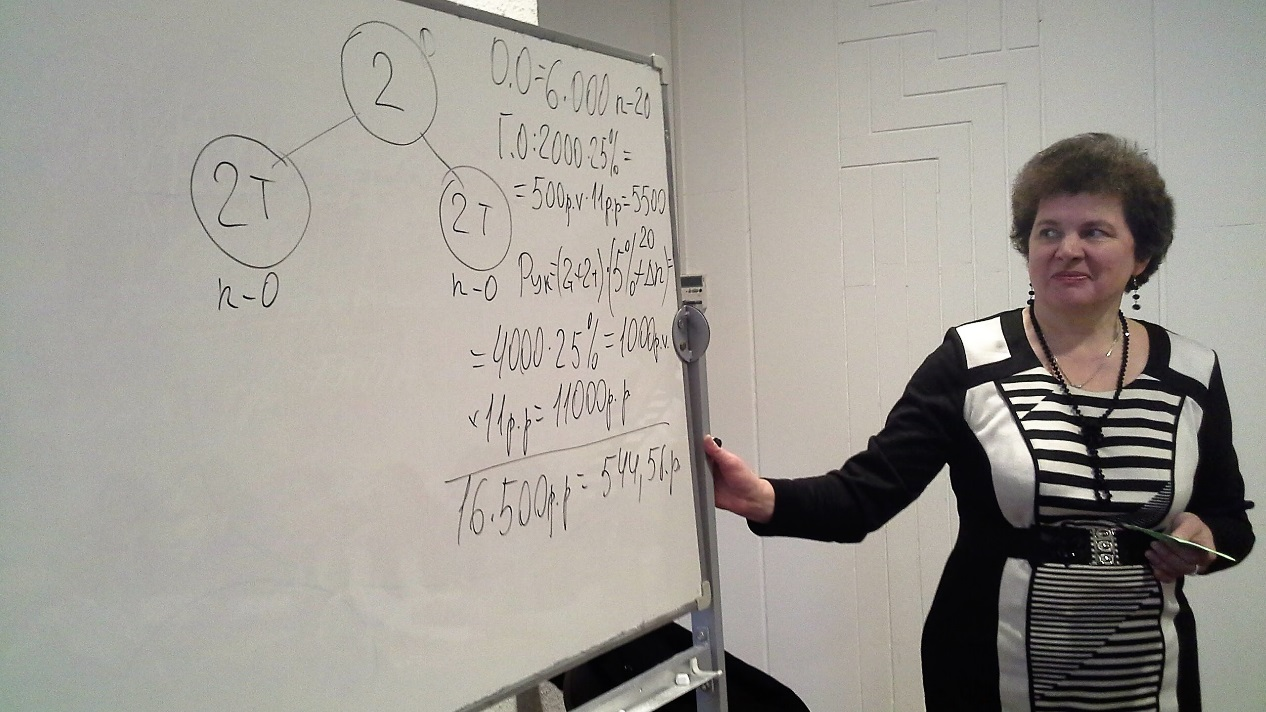 2
2т
2т
n-0
n-0
О.О=6.000 n-20
Г.О:2000·25%=
=500р.v·11р.р=5500
Рук=(2т+2т)·(5%+Δn)=
20
=4000·25%=1000р.v.
×11р.р=11000р.р
16.500р.р=544,5б.р